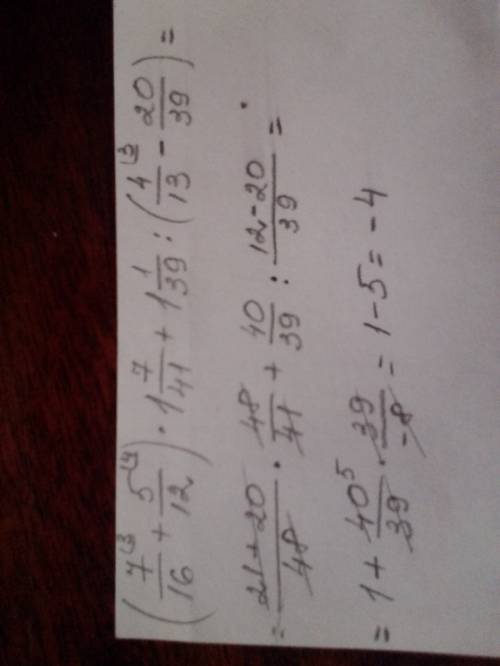 (7/16 + 5/12) · 1 7/41 + 1 1/39 : (4/13 - 20/39) =
= 21+20/48 · 48/41 + 40/39 : 12-20/39 =
= 1 + 40⁵/39 · 39/-8 = 1 - 5 = -4